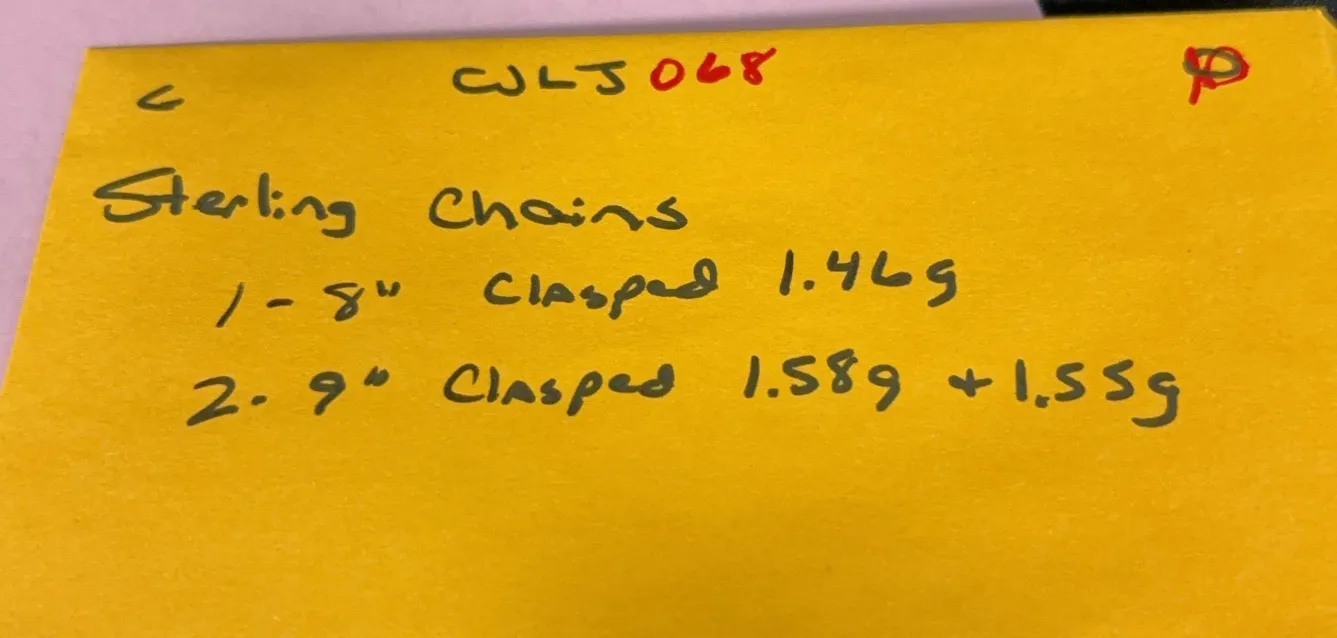 C WLJ 068 P
Sterling Chains
1 - 8" Clasped 1.46g
2. 9" Clasped 1.58g + 1.55g